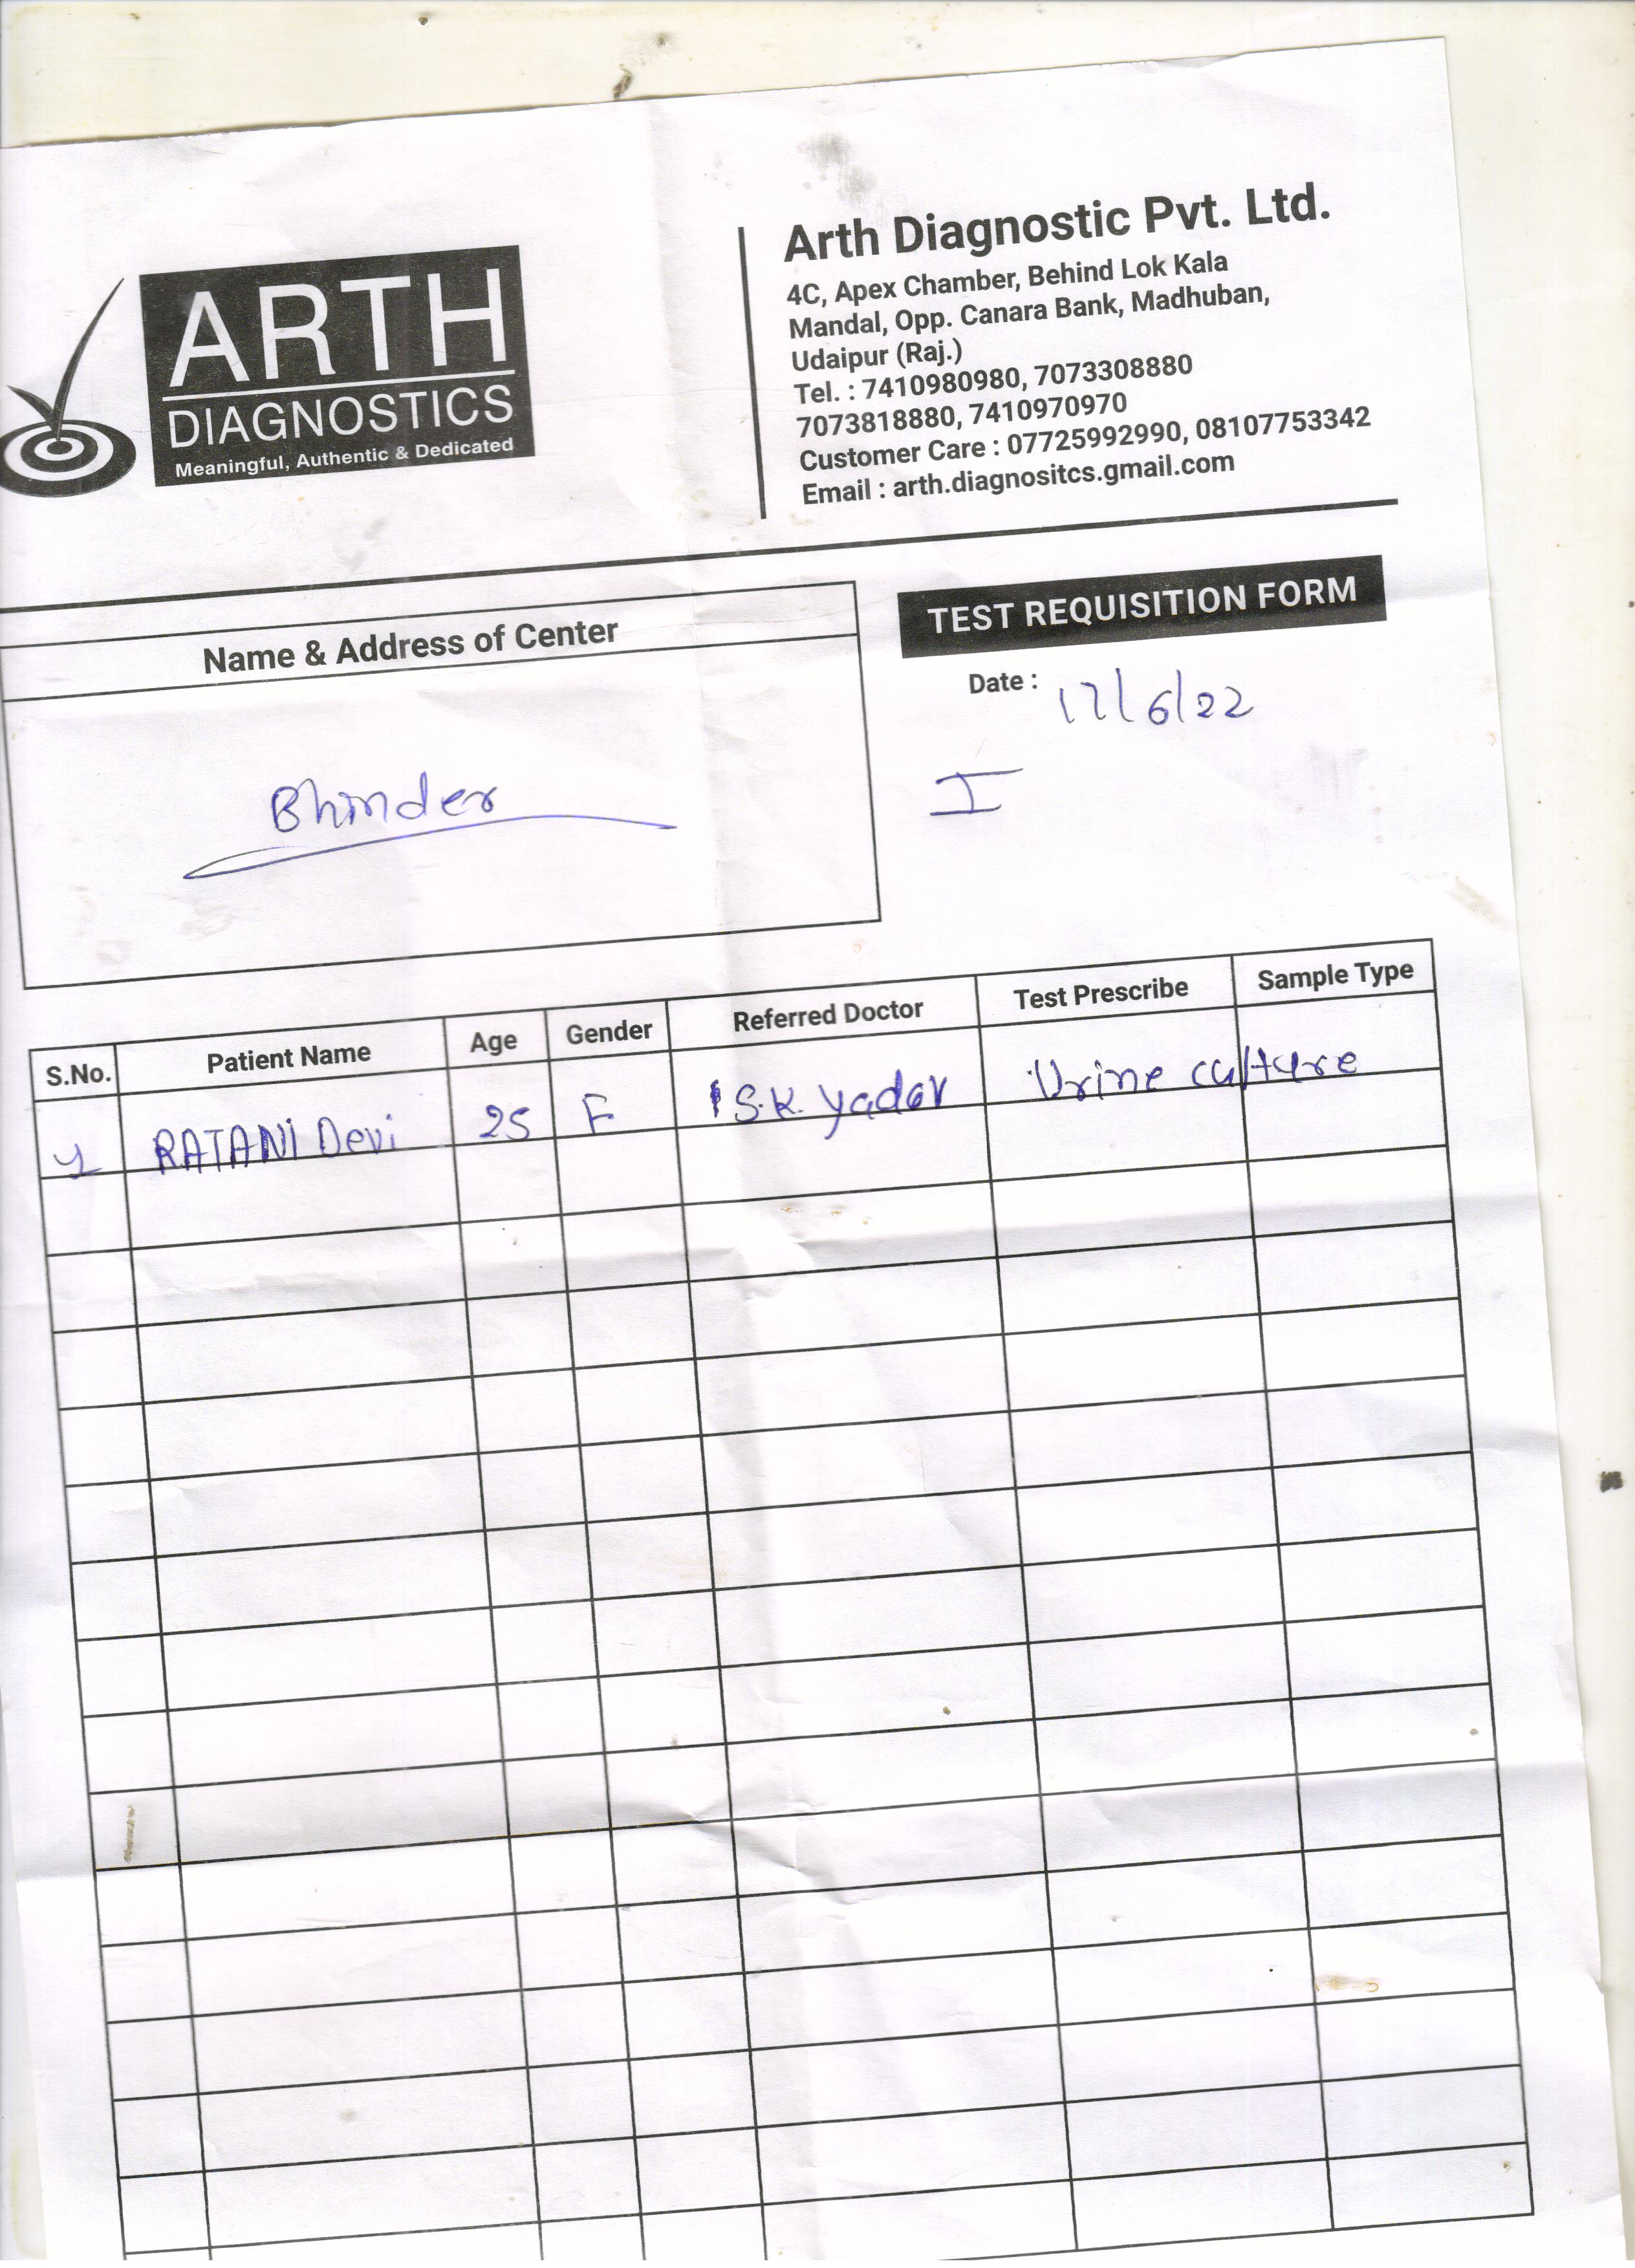 ARTH
DIAGNOSTICS
Meaningful, Authentic & Dedicated
Arth Diagnostic Pvt. Ltd.
4C, Apex Chamber, Behind Lok Kala
Mandal, Opp. Canara Bank, Madhuban,
Udaipur (Raj.)
Tel. : 7410980980, 7073308880
7073818880, 7410970970
Customer Care : 07725992990, 08107753342
Email : arth.diagnositcs.gmail.com
Name & Address of Center
Bhinder
TEST REQUISITION FORM
Date : 17/6/22
I
S.No. Patient Name Age Gender Referred Doctor Test Prescribe Sample Type
1 RATANI Devi 25 F S.K. yadav Urine culture